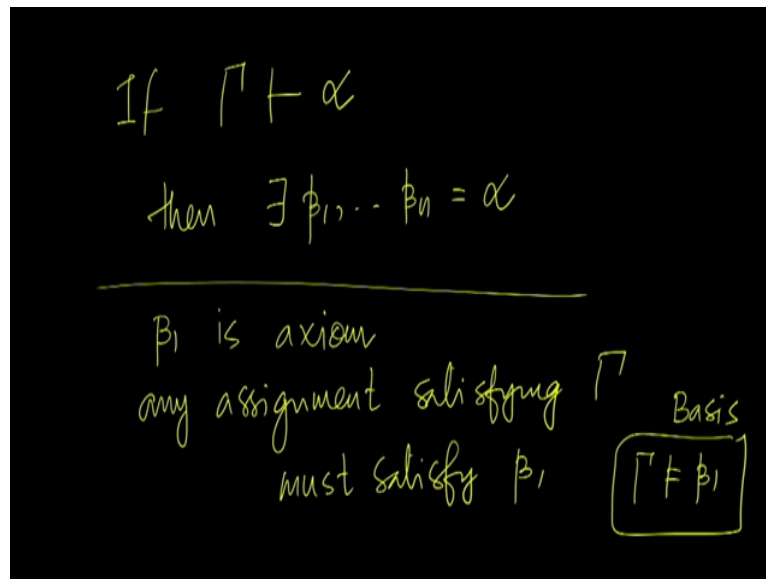 If Γ ⊢ α
then ∃ β₁, .. βₙ = α
β₁ is axiom
any assignment satisfying Γ
must satisfy β₁
Basis
Γ ⊨ β₁